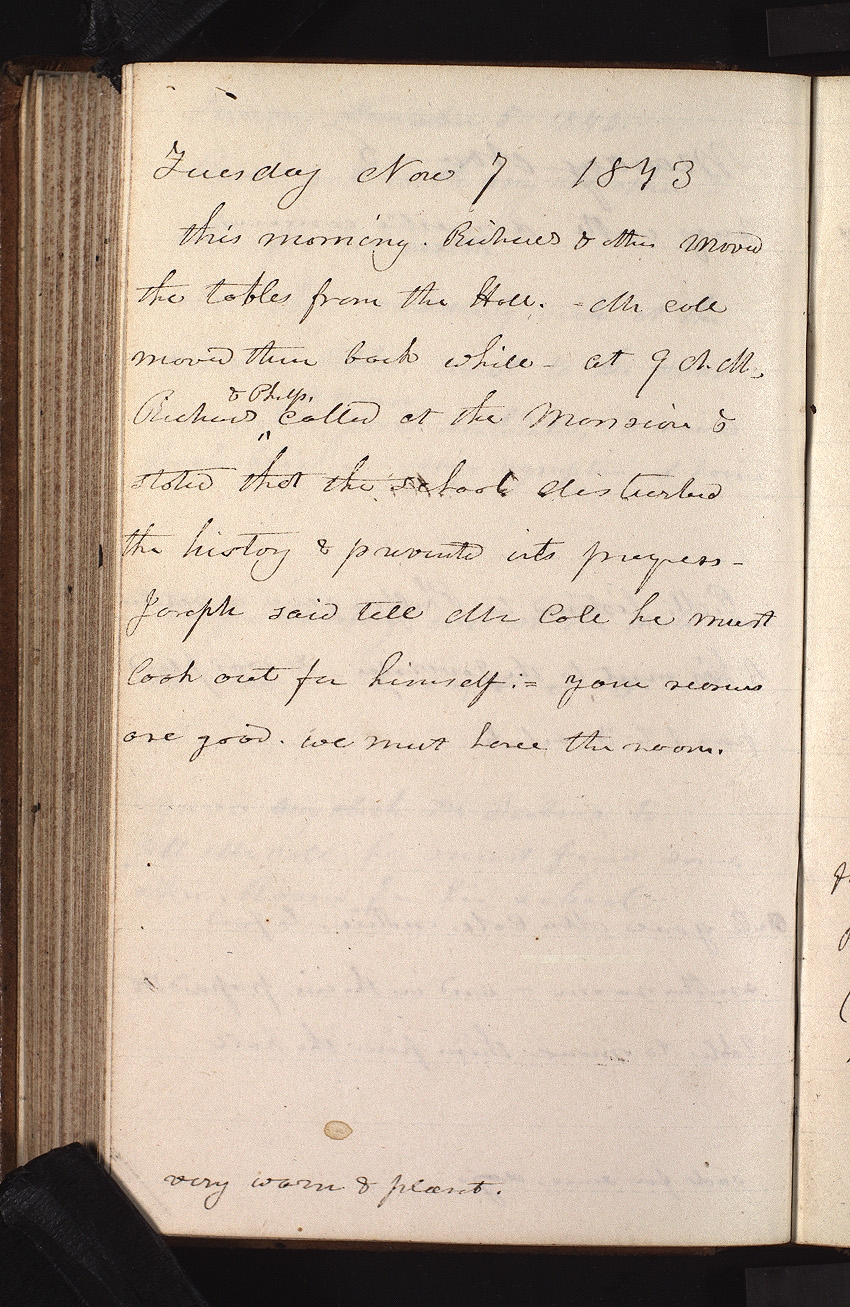 Tuesday Nov 7 1843
this morning. Richards & others moved
the tables from the Hall. - Mr Cole
moved them back while - at 9 A.M.
& Phelps.
Richards called at the Mansion &
stated that the school disturbed
the history & prevented its progress -
Joseph said tell Mr Cole he must
look out for himself:= your reasons
are good. we must have the room.
very warm & plesant.